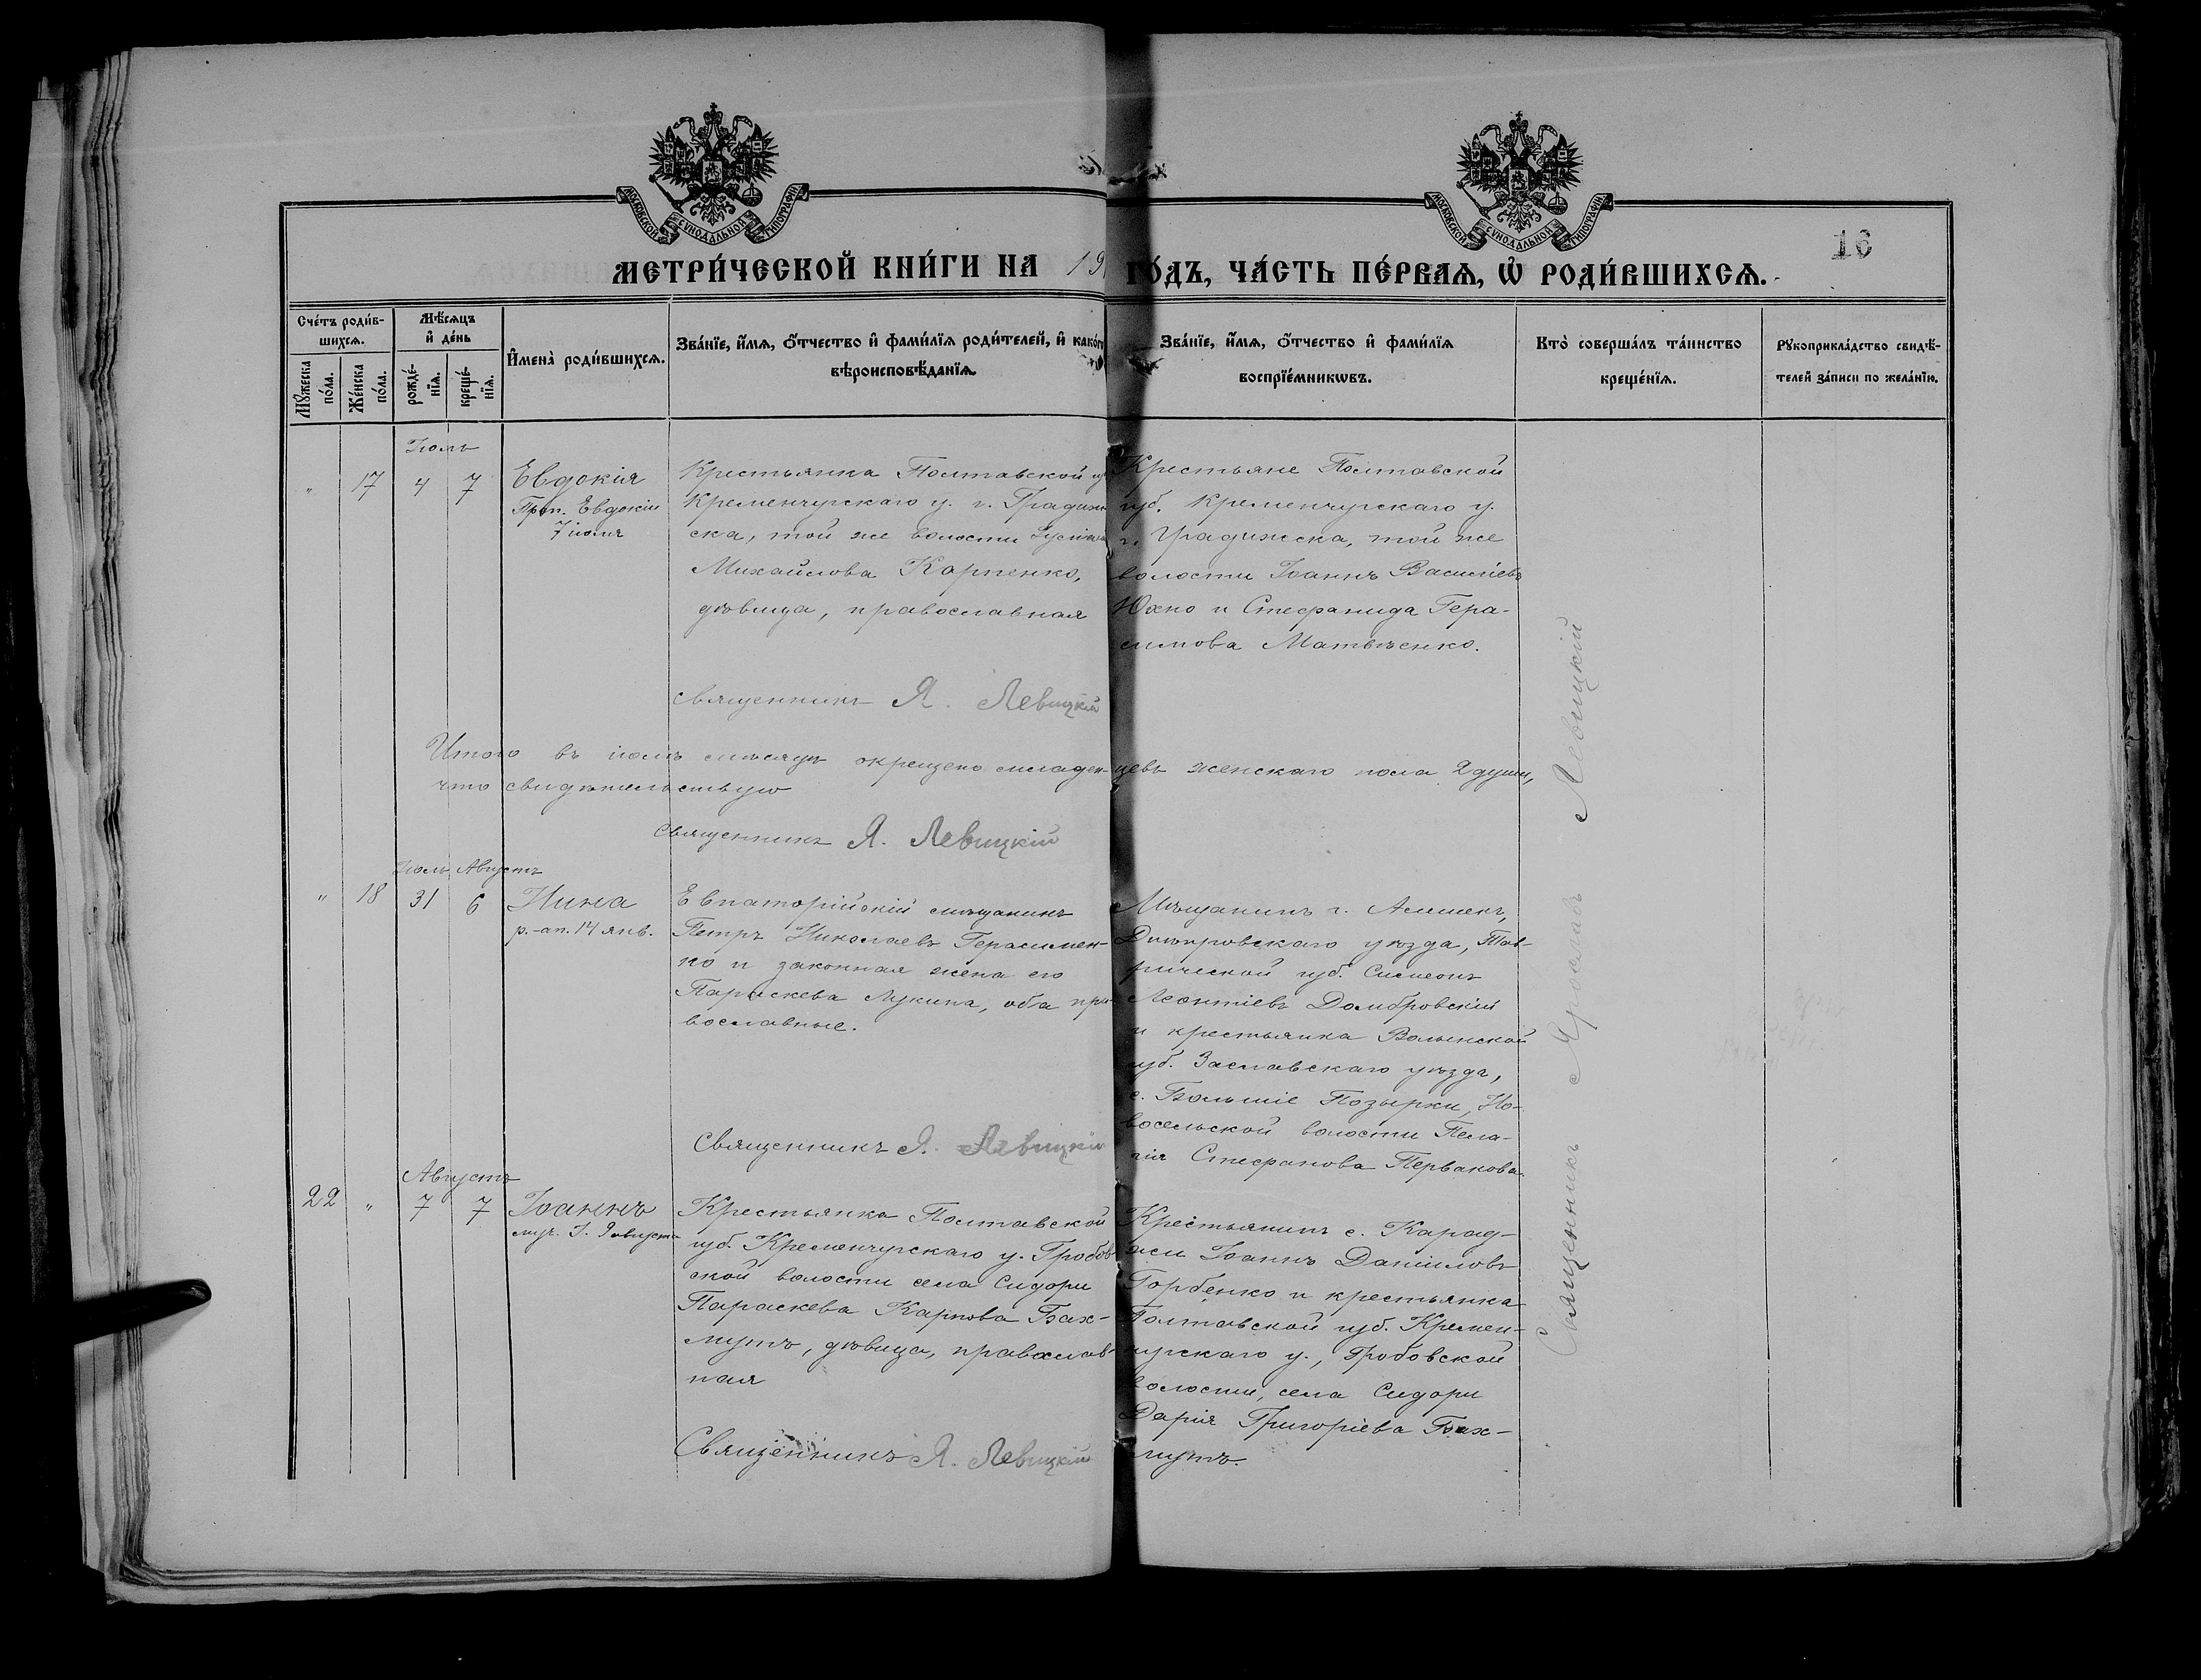 МОСКОВСКОЙ СѴНОДАЛЬНОЙ ТИПОГРАФІИ
МОСКОВСКОЙ СѴНОДАЛЬНОЙ ТИПОГРАФІИ
16
МЕТРИ́ЧЕСКОЙ КНИ́ГИ НА 19
ГО́ДЪ, ЧА́СТЬ ПЕ́РВАѦ, Ѽ РОДИ́ВШИХСѦ.
Сче́тъ роди́в-
шихсѧ.
Мꙋ́жеска
по́ла.
Же́нска
по́ла.
Мѣ́сѧцъ
и҆ де́нь
рожде́-
нїѧ.
креще́-
нїѧ.
И҆мена̀ роди́вшихсѧ.
Зва́нїе, и҆́мѧ, ѻ҆́тчество и҆ фами́лїѧ роди́телей, и҆ како́гѡ
вѣроисповѣ́данїѧ.
Зва́нїе, и҆́мѧ, ѻ҆́тчество и҆ фами́лїѧ
воспрїе́мникѡвъ.
Кто̀ соверша́лъ та́инство
креще́нїѧ.
Рꙋкоприкла́дство свидѣ́-
телей за́писи по жела́нїю.
Іюль
" 17 4 7
Евдокія
Преп. Евдокіи
7 іюля
Крестьянка Полтавской
Кременчугскаго у. г. Градиж-
ска, той же волости
Михайлова Карпенко,
дѣвица, православная
Священникъ Я. Левицкій
Крестьяне Полтавской
губ. Кременчугскаго у.
г. Градижска, той же
волости Іоаннъ Васильевъ
Юхно и Стефанида Гера-
симова Матвѣенко.
Итого въ іюлѣ мѣсяцѣ окрещено младенцевъ женскаго пола 2 души,
что свидѣтельствую
Священникъ Я. Левицкій
Іюль Августъ
" 18 31 6
Нина
р.-ап. 14 янв.
Евпаторійскій мѣщанинъ
Петръ Николаевъ Герасимен-
ко и законная жена его
Параскева Лукина, оба пра-
вославные.
Священникъ Я. Левицкій
Мѣщанинъ г. Алешекъ,
Днѣпровскаго уѣзда, Тав-
рической губ. Симеонъ
Леонтіевъ Домбровскій
и крестьянка Волынской
губ. Заславскаго уѣзда,
с. Большіе Позырки, Но-
восельской волости Пела-
гія Стефанова Первакова.
Августъ
22 " 7 7
Іоаннъ
муч. І. 9 августа
Крестьянка Полтавской
губ. Кременчугскаго у. Гробов-
ской волости села Сидори
Параскева Карпова Бах-
мутъ, дѣвица, православ-
ная
Священникъ Я. Левицкій
Крестьянинъ с. Карад-
жи Іоаннъ Даниловъ
Горбенко и крестьянка
Полтавской губ. Кремен-
чугскаго у., Гробовской
волости, села Сидори
Дарія Григоріева Бах-
мутъ.
Священникъ Ярославъ Левицкій